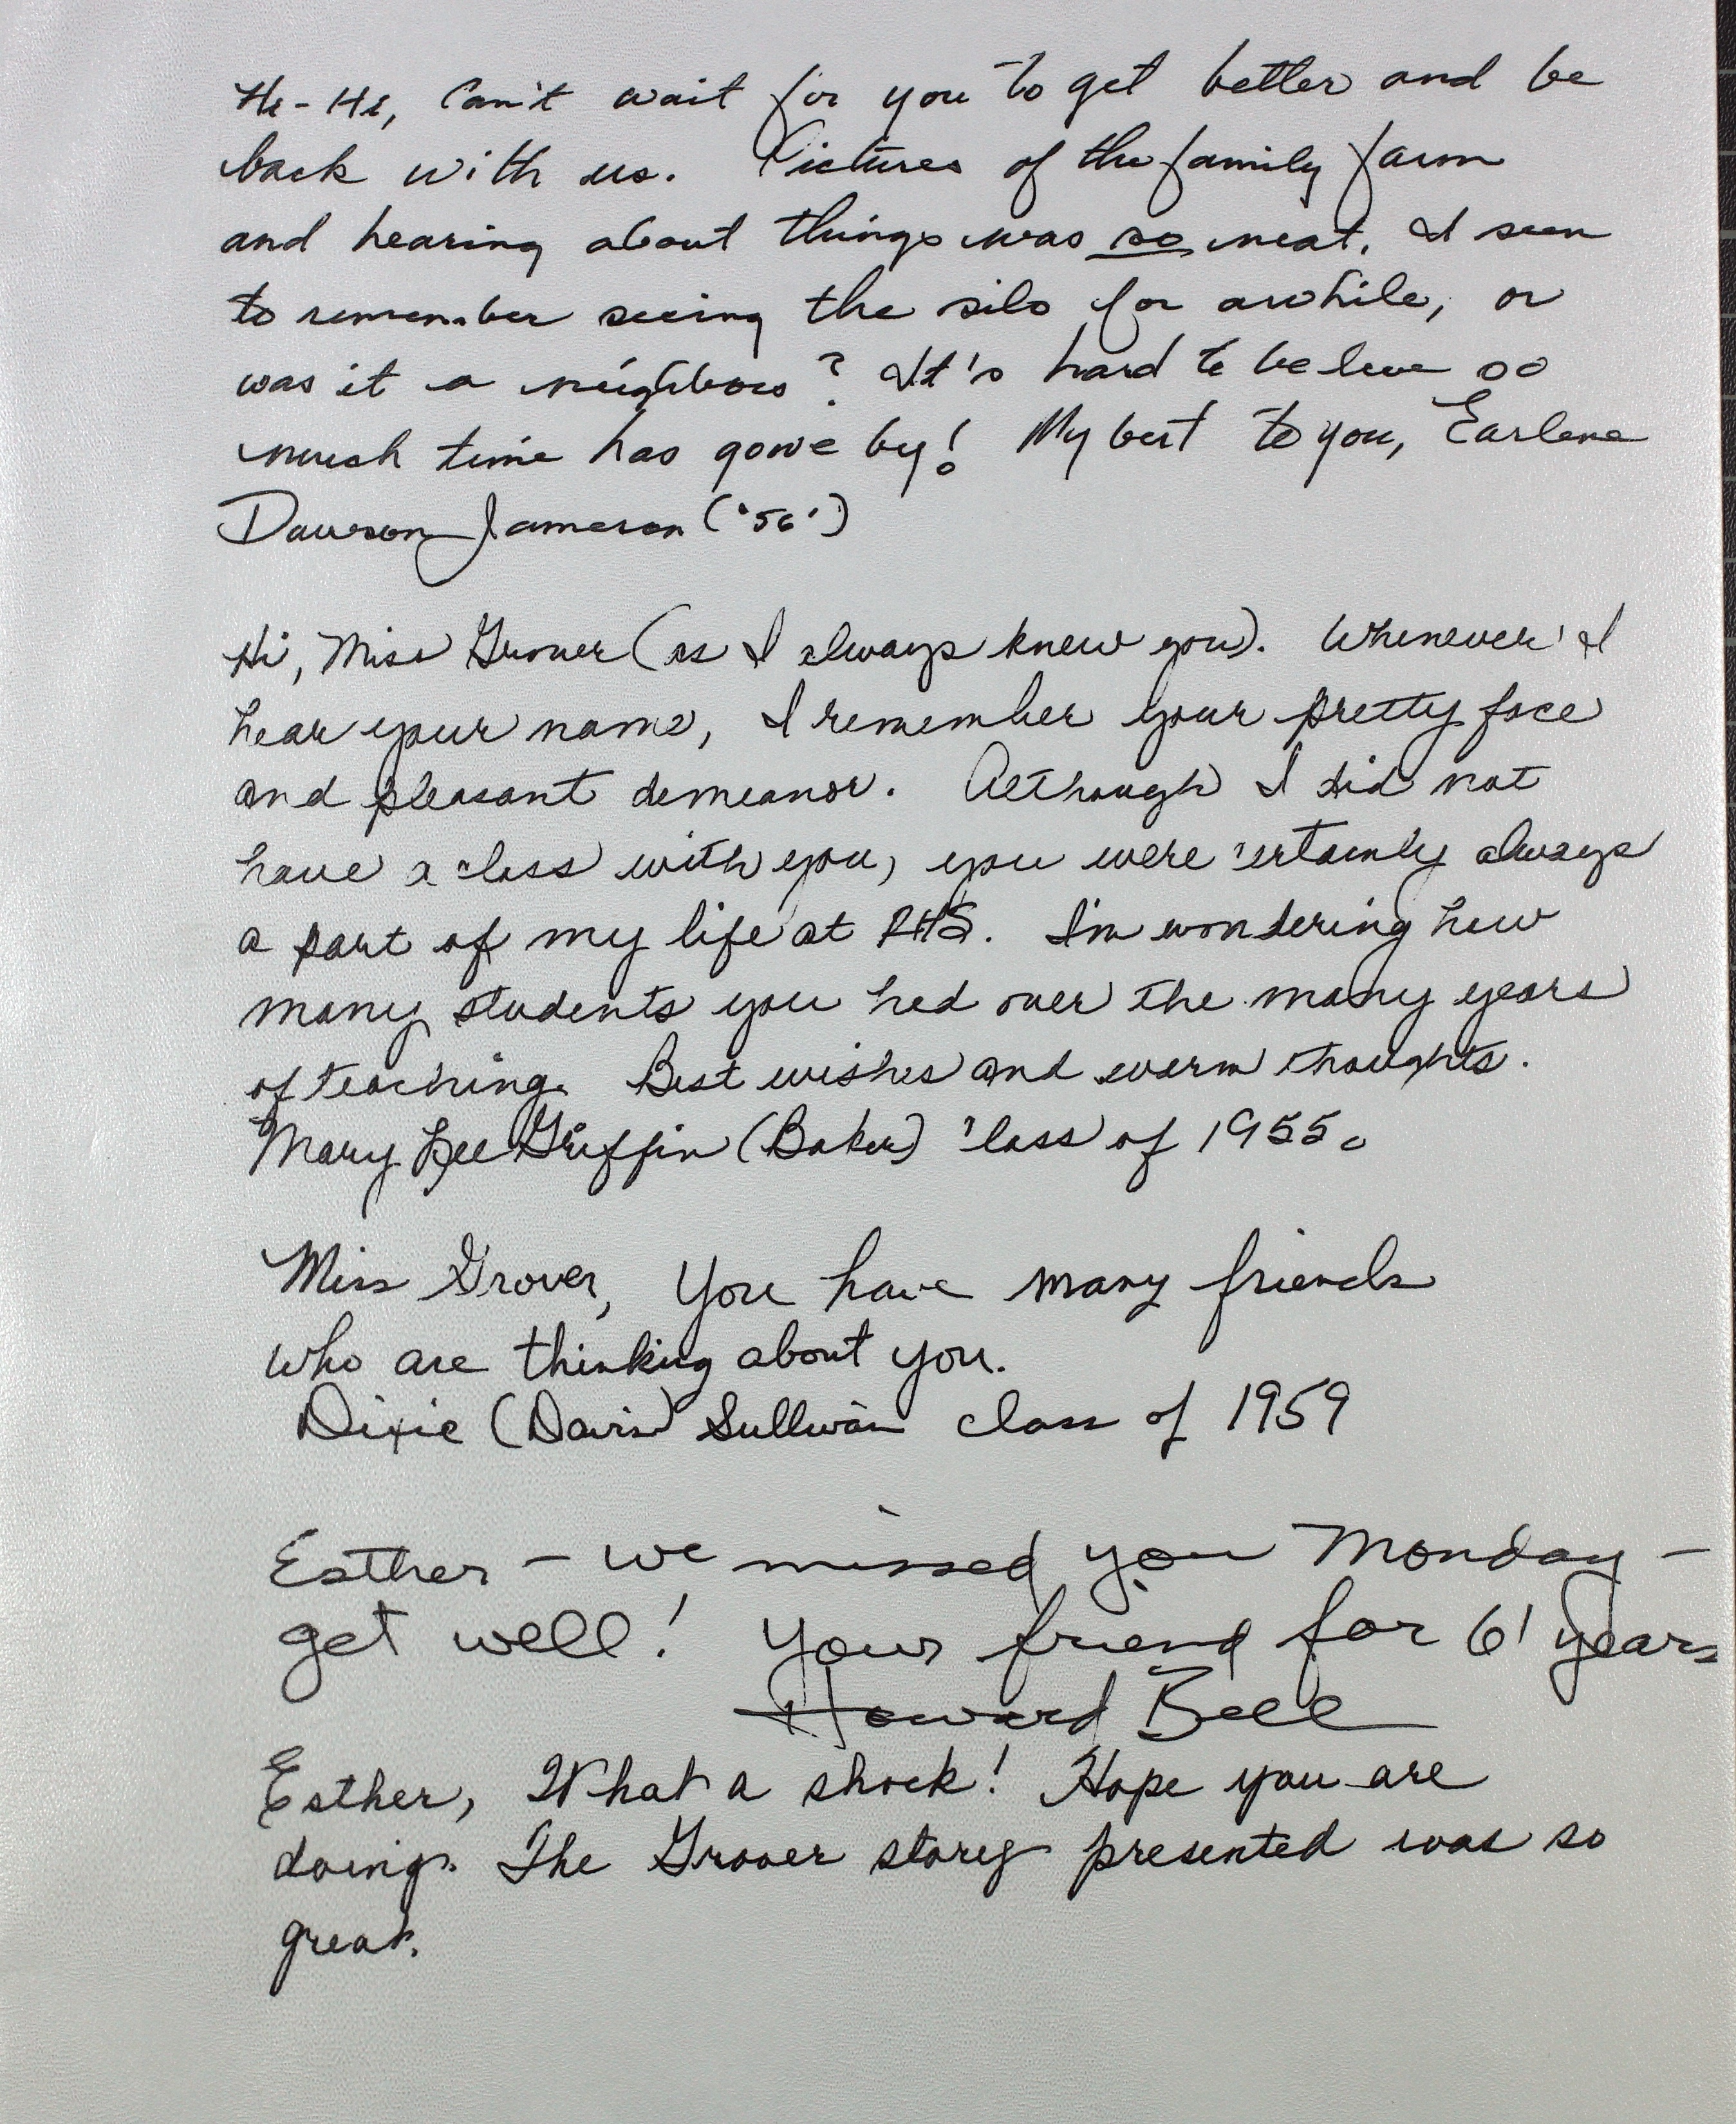 Hi-Hi, Can't wait for you to get better and be
back with us. Pictures of the family farm
and hearing about things was so neat. I seem
to remember seeing the silo for awhile, or
was it a neighbors? It's hard to believe so
much time has gone by! My best to you, Earlene
Dawson Jameson ('56')
Hi, Miss Grover (as I always knew you). Whenever I
hear your name, I remember your pretty face
and pleasant demeanor. Although I did not
have a class with you, you were certainly always
a part of my life at RHS. I'm wondering how
many students you had over the many years
of teaching. Best wishes and warm thoughts.
Mary Lee Griffin (Baker) Class of 1955.
Miss Grover, You have many friends
who are thinking about you.
Dixie (Davis) Sullivan class of 1959
Esther - we missed you Monday -
get well! Your friend for 61 years
Howard Bell
Esther, What a shock! Hope you are
doing. The Grover story presented was so
great.